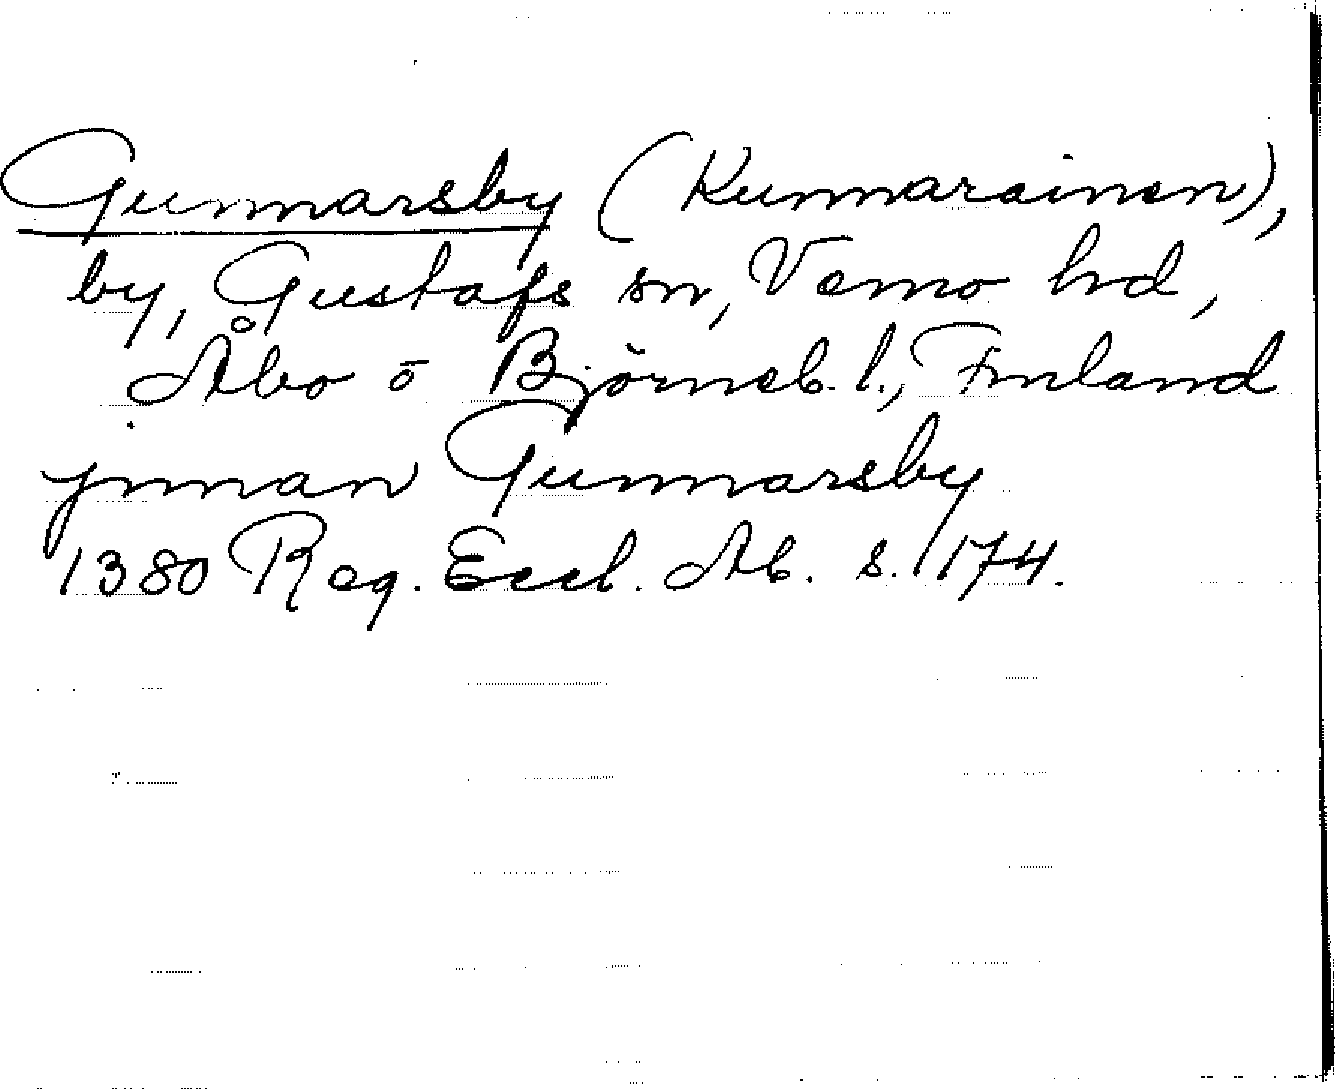 Gunnarsby (Kunnarainen),
by, Gustafs sn, Vemo hd,
Åbo o Björneb. l., Finland
jnnan Gunnarsby
1380 Reg. Eccl. Ab. s. 174.